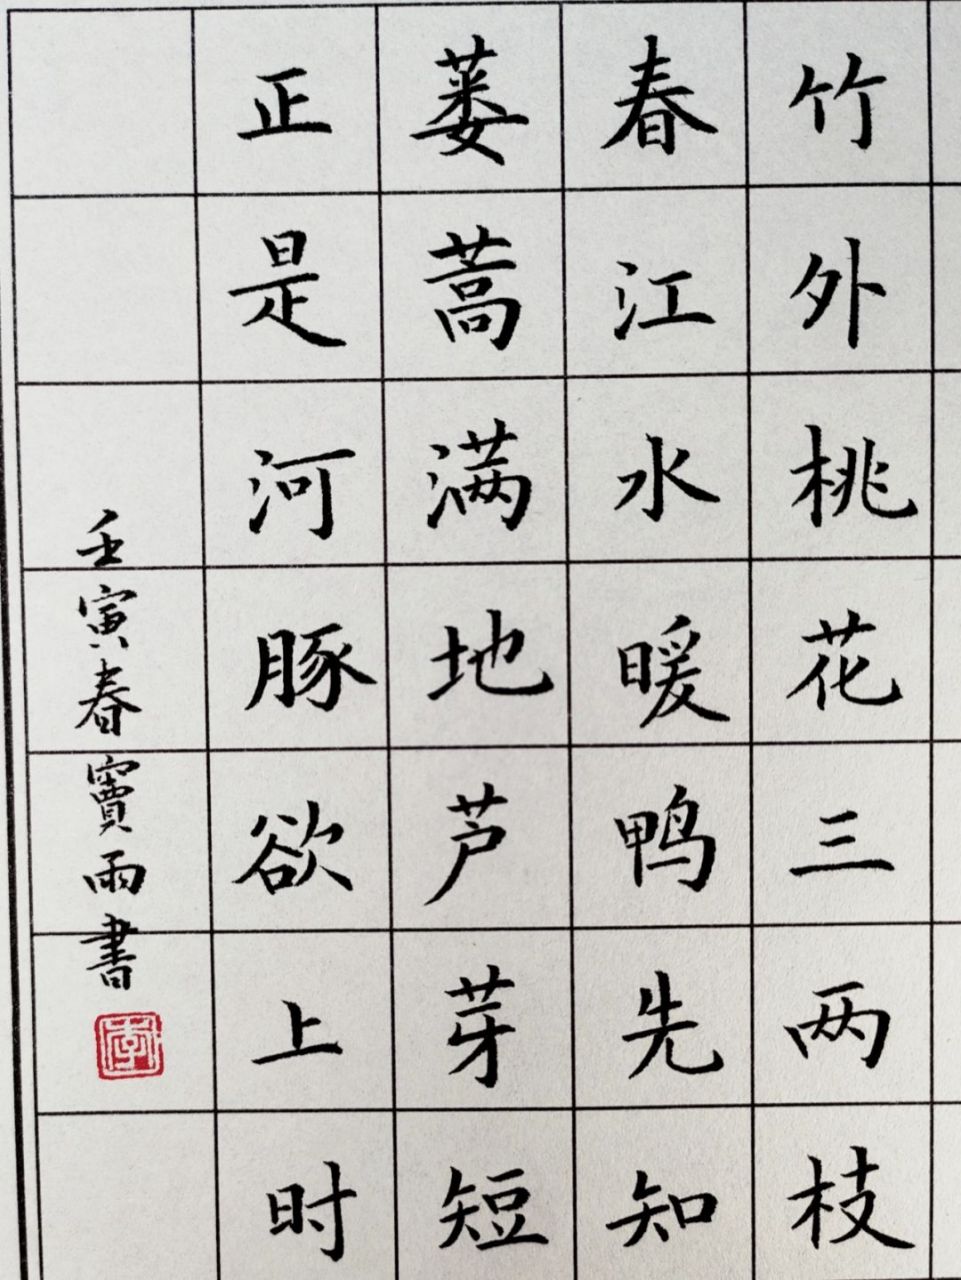 竹外桃花三两枝
春江水暖鸭先知
蒌蒿满地芦芽短
正是河豚欲上时
壬寅春竇雨書